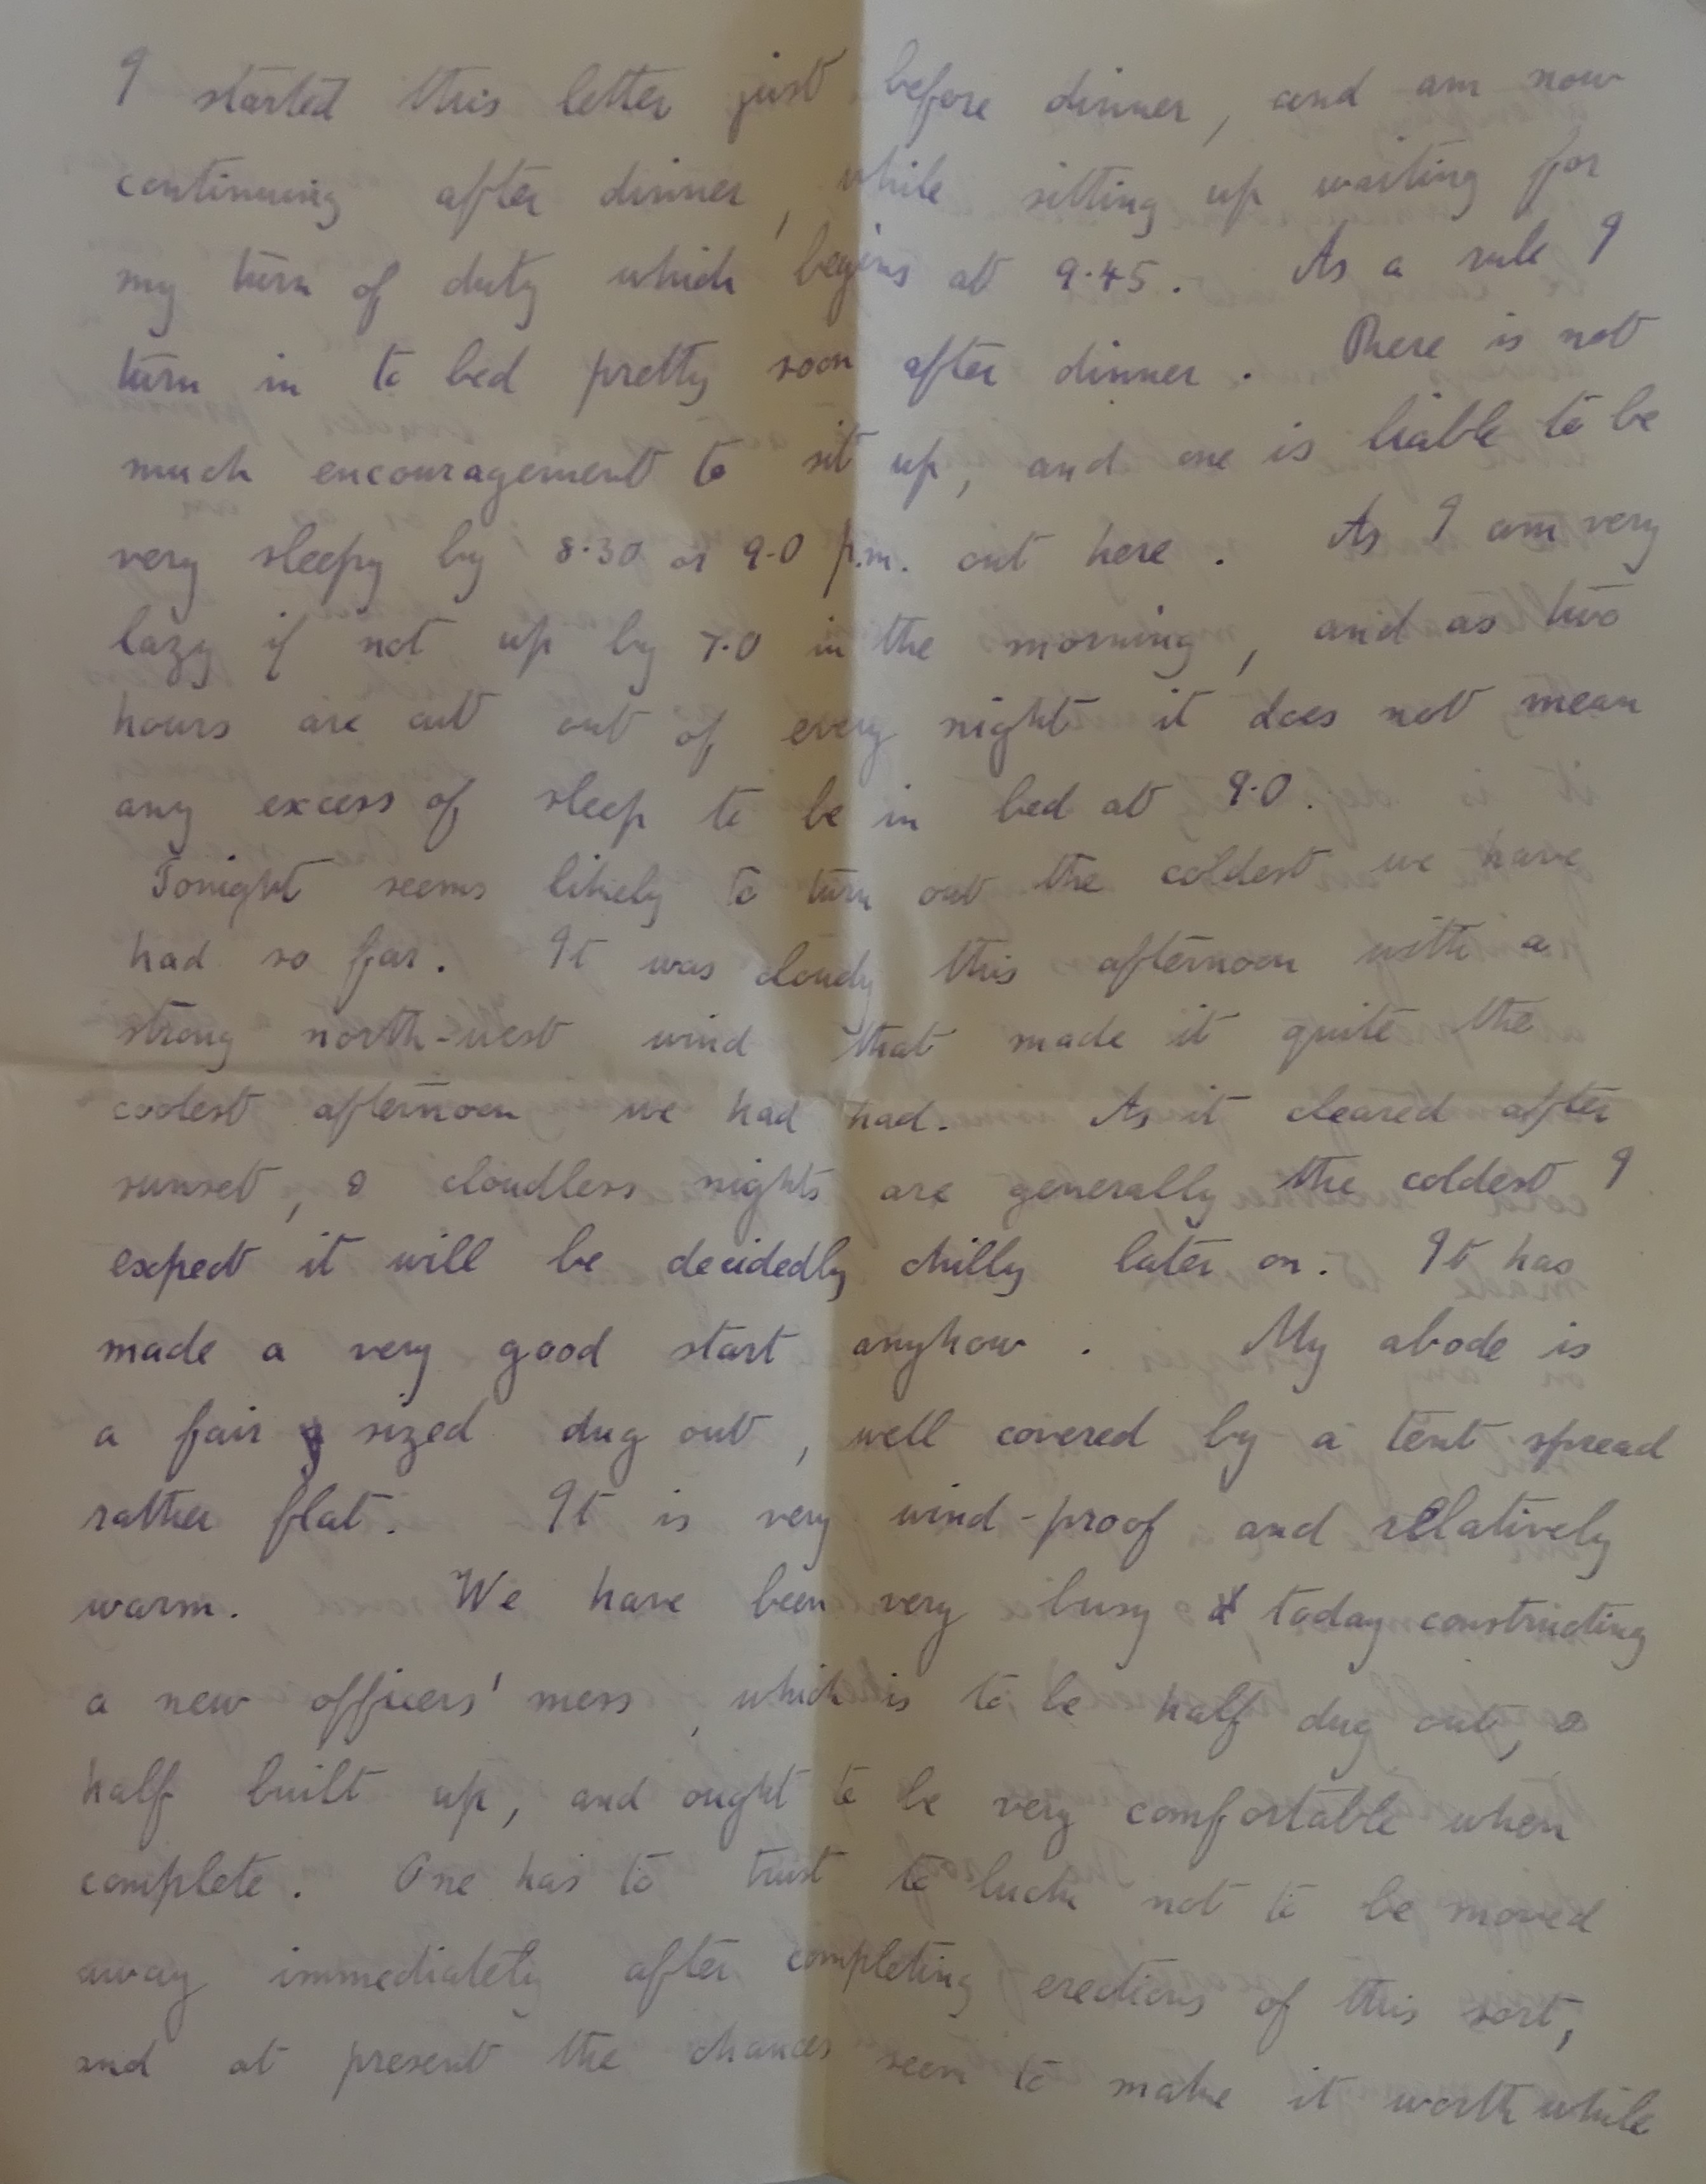 I started this letter just before dinner, and am now
continuing after dinner, while sitting up waiting for
my turn of duty which begins at 9.45. As a rule I
turn in to bed pretty soon after dinner. There is not
much encouragement to sit up, and one is liable to be
very sleepy by 8.30 or 9.0 p.m. out here. As I am very
lazy if not up by 7.0 in the morning, and as two
hours are cut out of every night it does not mean
any excess of sleep to be in bed at 9.0.
Tonight seems likely to turn out the coldest we have
had so far. It was cloudy this afternoon with a
strong north-west wind that made it quite the
coolest afternoon we had had. As it cleared after
sunset, & cloudless nights are generally the coldest I
expect it will be decidedly chilly later on. It has
made a very good start anyhow. My abode is
a fair sized dug out, well covered by a tent spread
rather flat. It is very wind-proof and relatively
warm. We have been very busy today constructing
a new officers' mess, which is to be half dug out, &
half built up, and ought to be very comfortable when
complete. One has to trust to luck not to be moved
away immediately after completing erections of this sort,
and at present the chances seem to make it worth while